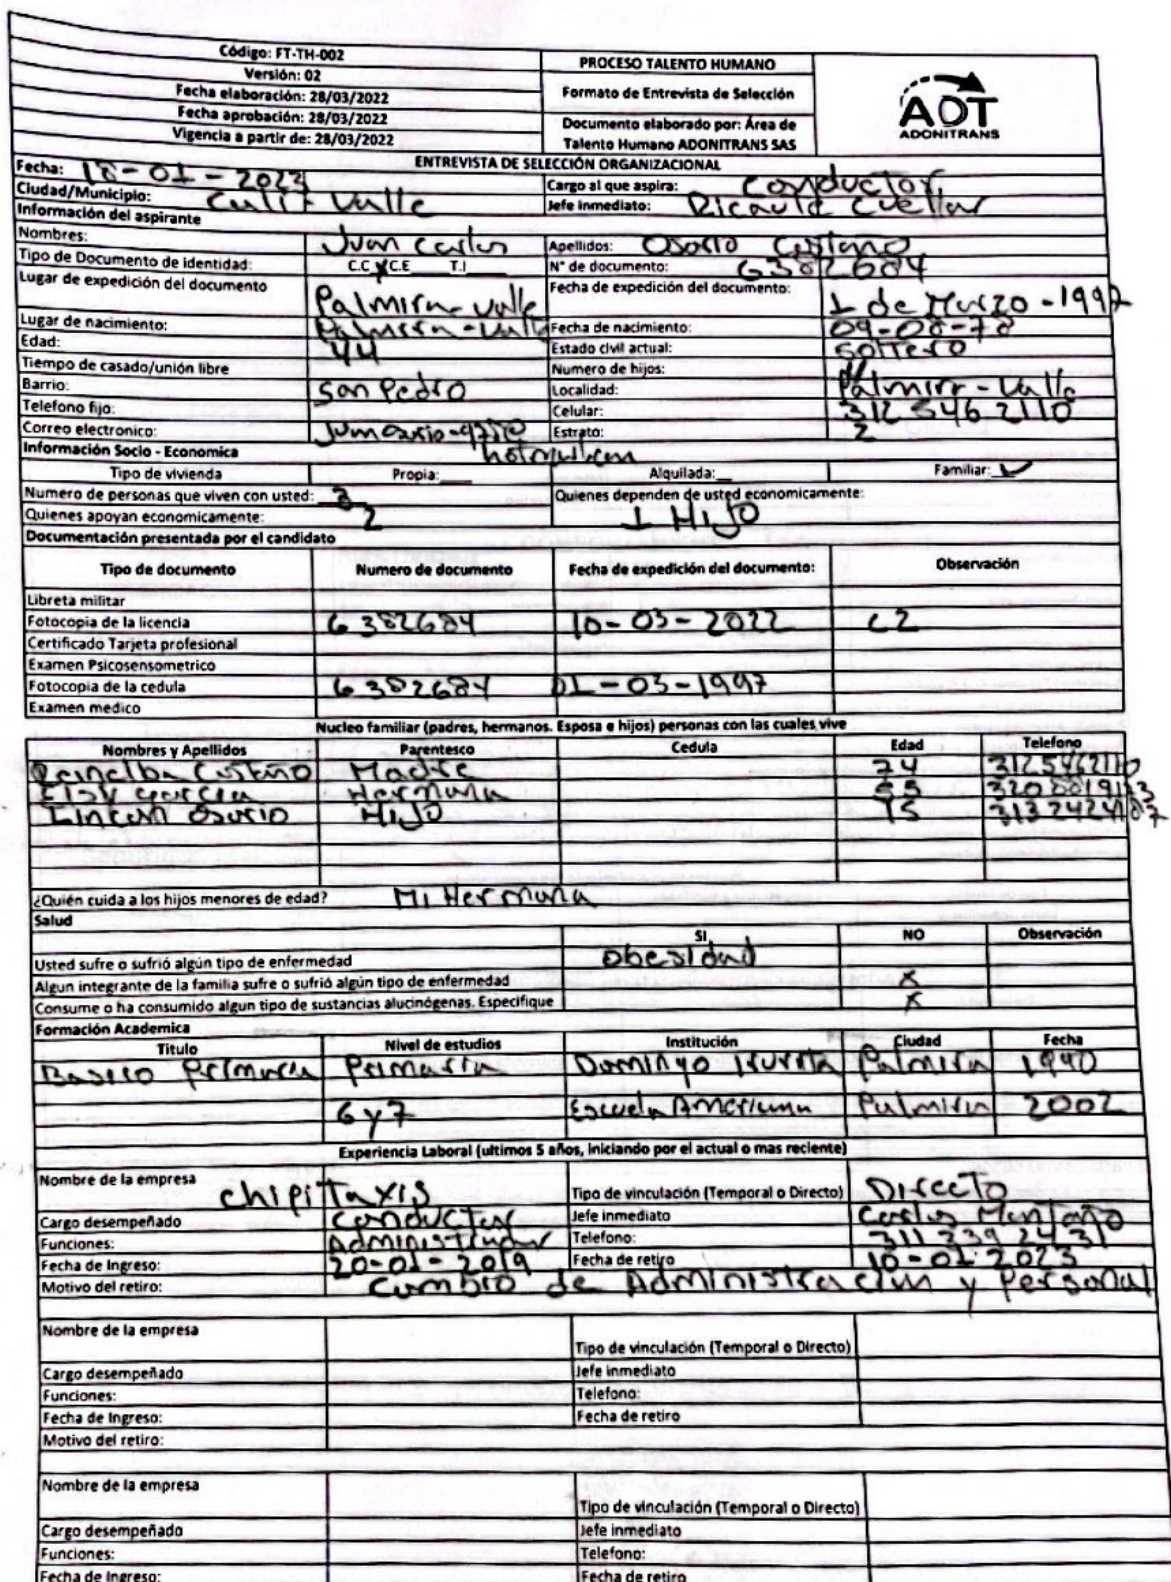 Código: FT-TH-002
Versión: 02
Fecha elaboración: 28/03/2022
Fecha aprobación: 28/03/2022
Vigencia a partir de: 28/03/2022
PROCESO TALENTO HUMANO
Formato de Entrevista de Selección
Documento elaborado por: Área de
Talento Humano ADONITRANS SAS
ADT
ADONITRANS
ENTREVISTA DE SELECCIÓN ORGANIZACIONAL
Fecha: 18-01-2023 Cargo al que aspira: Conductor
Ciudad/Municipio: Cali-Valle Jefe inmediato: Ricaute Cuellar
Información del aspirante
Nombres: Juan Carlos Apellidos: Osorio Castaño
Tipo de Documento de identidad: C.C X C.E___ T.I___ N° de documento: 6382684
Lugar de expedición del documento Palmira-Valle Fecha de expedición del documento: 1 de Marzo-1997
Lugar de nacimiento: Palmira-Valle Fecha de nacimiento: 09-08-78
Edad: 44 Estado civil actual: Soltero
Tiempo de casado/unión libre Numero de hijos:
Barrio: San Pedro Localidad: Palmira-Valle
Telefono fijo: Celular: 312 546 2110
Correo electronico: Estrato: 2
Información Socio - Economica
Tipo de vivienda Propia:___ Alquilada:__ Familiar:
Numero de personas que viven con usted: 3 Quienes dependen de usted economicamente:
Quienes apoyan economicamente: 2 1 HIJO
Documentación presentada por el candidato
Tipo de documento Numero de documento Fecha de expedición del documento: Observación
Libreta militar
Fotocopia de la licencia 6382684 10-03-2022 C2
Certificado Tarjeta profesional
Examen Psicosensometrico
Fotocopia de la cedula 6382684 01-03-1997
Examen medico
Nucleo familiar (padres, hermanos. Esposa e hijos) personas con las cuales vive
Nombres y Apellidos Parentesco Cedula Edad Telefono
Castaño Madre 74 3125462110
Garcia Hermana
Osorio HIJO 15
¿Quién cuida a los hijos menores de edad? Mi Hermana
Salud
SI NO Observación
Usted sufre o sufrió algún tipo de enfermedad Obesidad
Algun integrante de la familia sufre o sufrió algún tipo de enfermedad X
Consume o ha consumido algun tipo de sustancias alucinógenas. Especifique X
Formación Academica
Titulo Nivel de estudios Institución Ciudad Fecha
Basico Primaria Primaria Domingo Irurita Palmira 1990
6 y 7 Escuela Americana Palmira 2002
Experiencia Laboral (ultimos 5 años, iniciando por el actual o mas reciente)
Nombre de la empresa Chipitaxis Tipo de vinculación (Temporal o Directo) Directo
Cargo desempeñado Conductor Jefe inmediato Carlos Montaño
Funciones: Administrador Telefono: 311 339 24 31
Fecha de Ingreso: 20-01-2019 Fecha de retiro 10-01-2023
Motivo del retiro: Cambio de Administracion y Personal
Nombre de la empresa
Tipo de vinculación (Temporal o Directo)
Cargo desempeñado Jefe inmediato
Funciones: Telefono:
Fecha de Ingreso: Fecha de retiro
Motivo del retiro:
Nombre de la empresa
Tipo de vinculación (Temporal o Directo)
Cargo desempeñado Jefe inmediato
Funciones: Telefono:
Fecha de Ingreso: Fecha de retiro